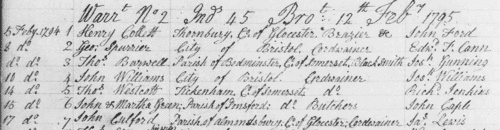 Warrt. No 2 Ind. 45 Brot. 12th Feby 1795
5 Feby. 1794 1 Henry Collett Thornbury, C. of Glocester Brazier & John Ford
8 do. 2 Geo. Spurrier City of Bristol Cordwainer Edwd. T. Cann
do. do. 3 Thos. Barwell Parish of Bedminster, C. of Somerset, Black Smith Jos. Gunning
10 do. 4 John Williams City of Bristol. Cordwainer Jos. Williams
14 do. 5 Thos. Westcott Tickenham, C. of Somerset, do. Richd. Jenkins
16 do. 6 John & Martha Green; Parish of do. Butchers John Caple
17 do. 7 John Parish of Almondsbury, C. of Glocester; Cordwainer Jas. Lewis